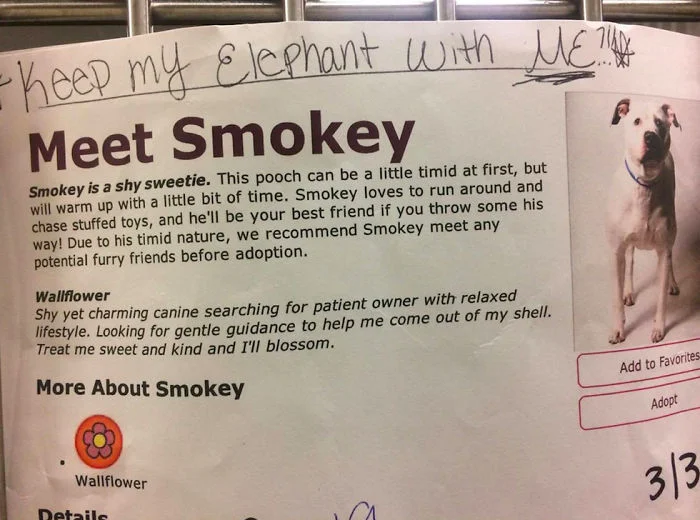 Keep my Elephant with ME
Meet Smokey
Smokey is a shy sweetie. This pooch can be a little timid at first, but
will warm up with a little bit of time. Smokey loves to run around and
chase stuffed toys, and he'll be your best friend if you throw some his
way! Due to his timid nature, we recommend Smokey meet any
potential furry friends before adoption.
Wallflower
Shy yet charming canine searching for patient owner with relaxed
lifestyle. Looking for gentle guidance to help me come out of my shell.
Treat me sweet and kind and I'll blossom.
Add to Favorites
Adopt
More About Smokey
Wallflower
3/3
Details